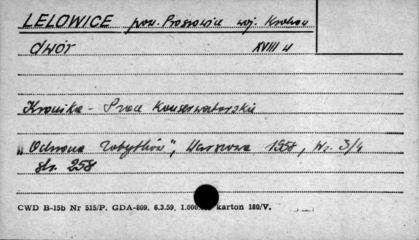 LELOWICE pow. Proszowice woj. Kraków
dwór XVIII w
Kronika - Prace Konserwatorskie
"Ochrona Zabytków", Warszawa 1958, Nr. 3/4
str. 258
CWD B-15b Nr 515/P. GDA-869. 6.3.59. 1.000 karton 180/V.